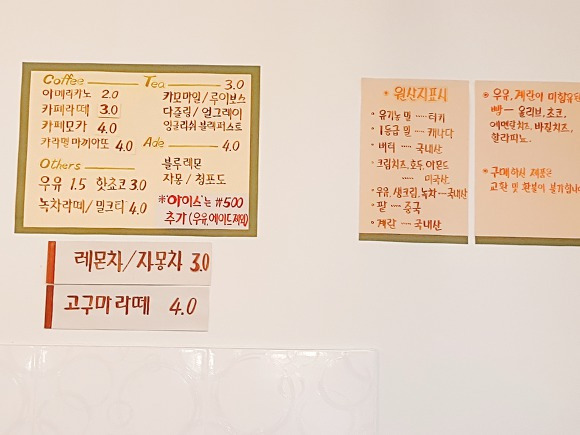 Coffee
아메리카노 2.0
카페라떼 3.0
카페모카 4.0
카라멜 마끼아또 4.0
Others
우유 1.5 핫초코 3.0
녹차라떼/밀크티 4.0
Tea 3.0
카모마일/루이보스
다즐링/얼그레이
잉글리쉬 블랙퍼스트
Ade 4.0
블루레몬
자몽/청포도
*'아이스'는 ₩500
추가 (우유,에이드제외)
레몬차/자몽차 3.0
고구마라떼 4.0
원산지표시
• 유기농 밀 ····· 터키
• 1등급 밀 ···· 캐나다
• 버터 ···· 국내산
• 크림치즈, 호두, 아몬드
····· 미국산
• 우유, 생크림, 녹차 ··· 국내산
• 팥 ···· 중국
• 계란 ···· 국내산
우유, 계란이 미함유된
빵 — 올리브, 초코,
에멘탈치즈, 바질치즈,
할라피뇨.
구매하신 제품은
교환 및 환불이 불가합니다